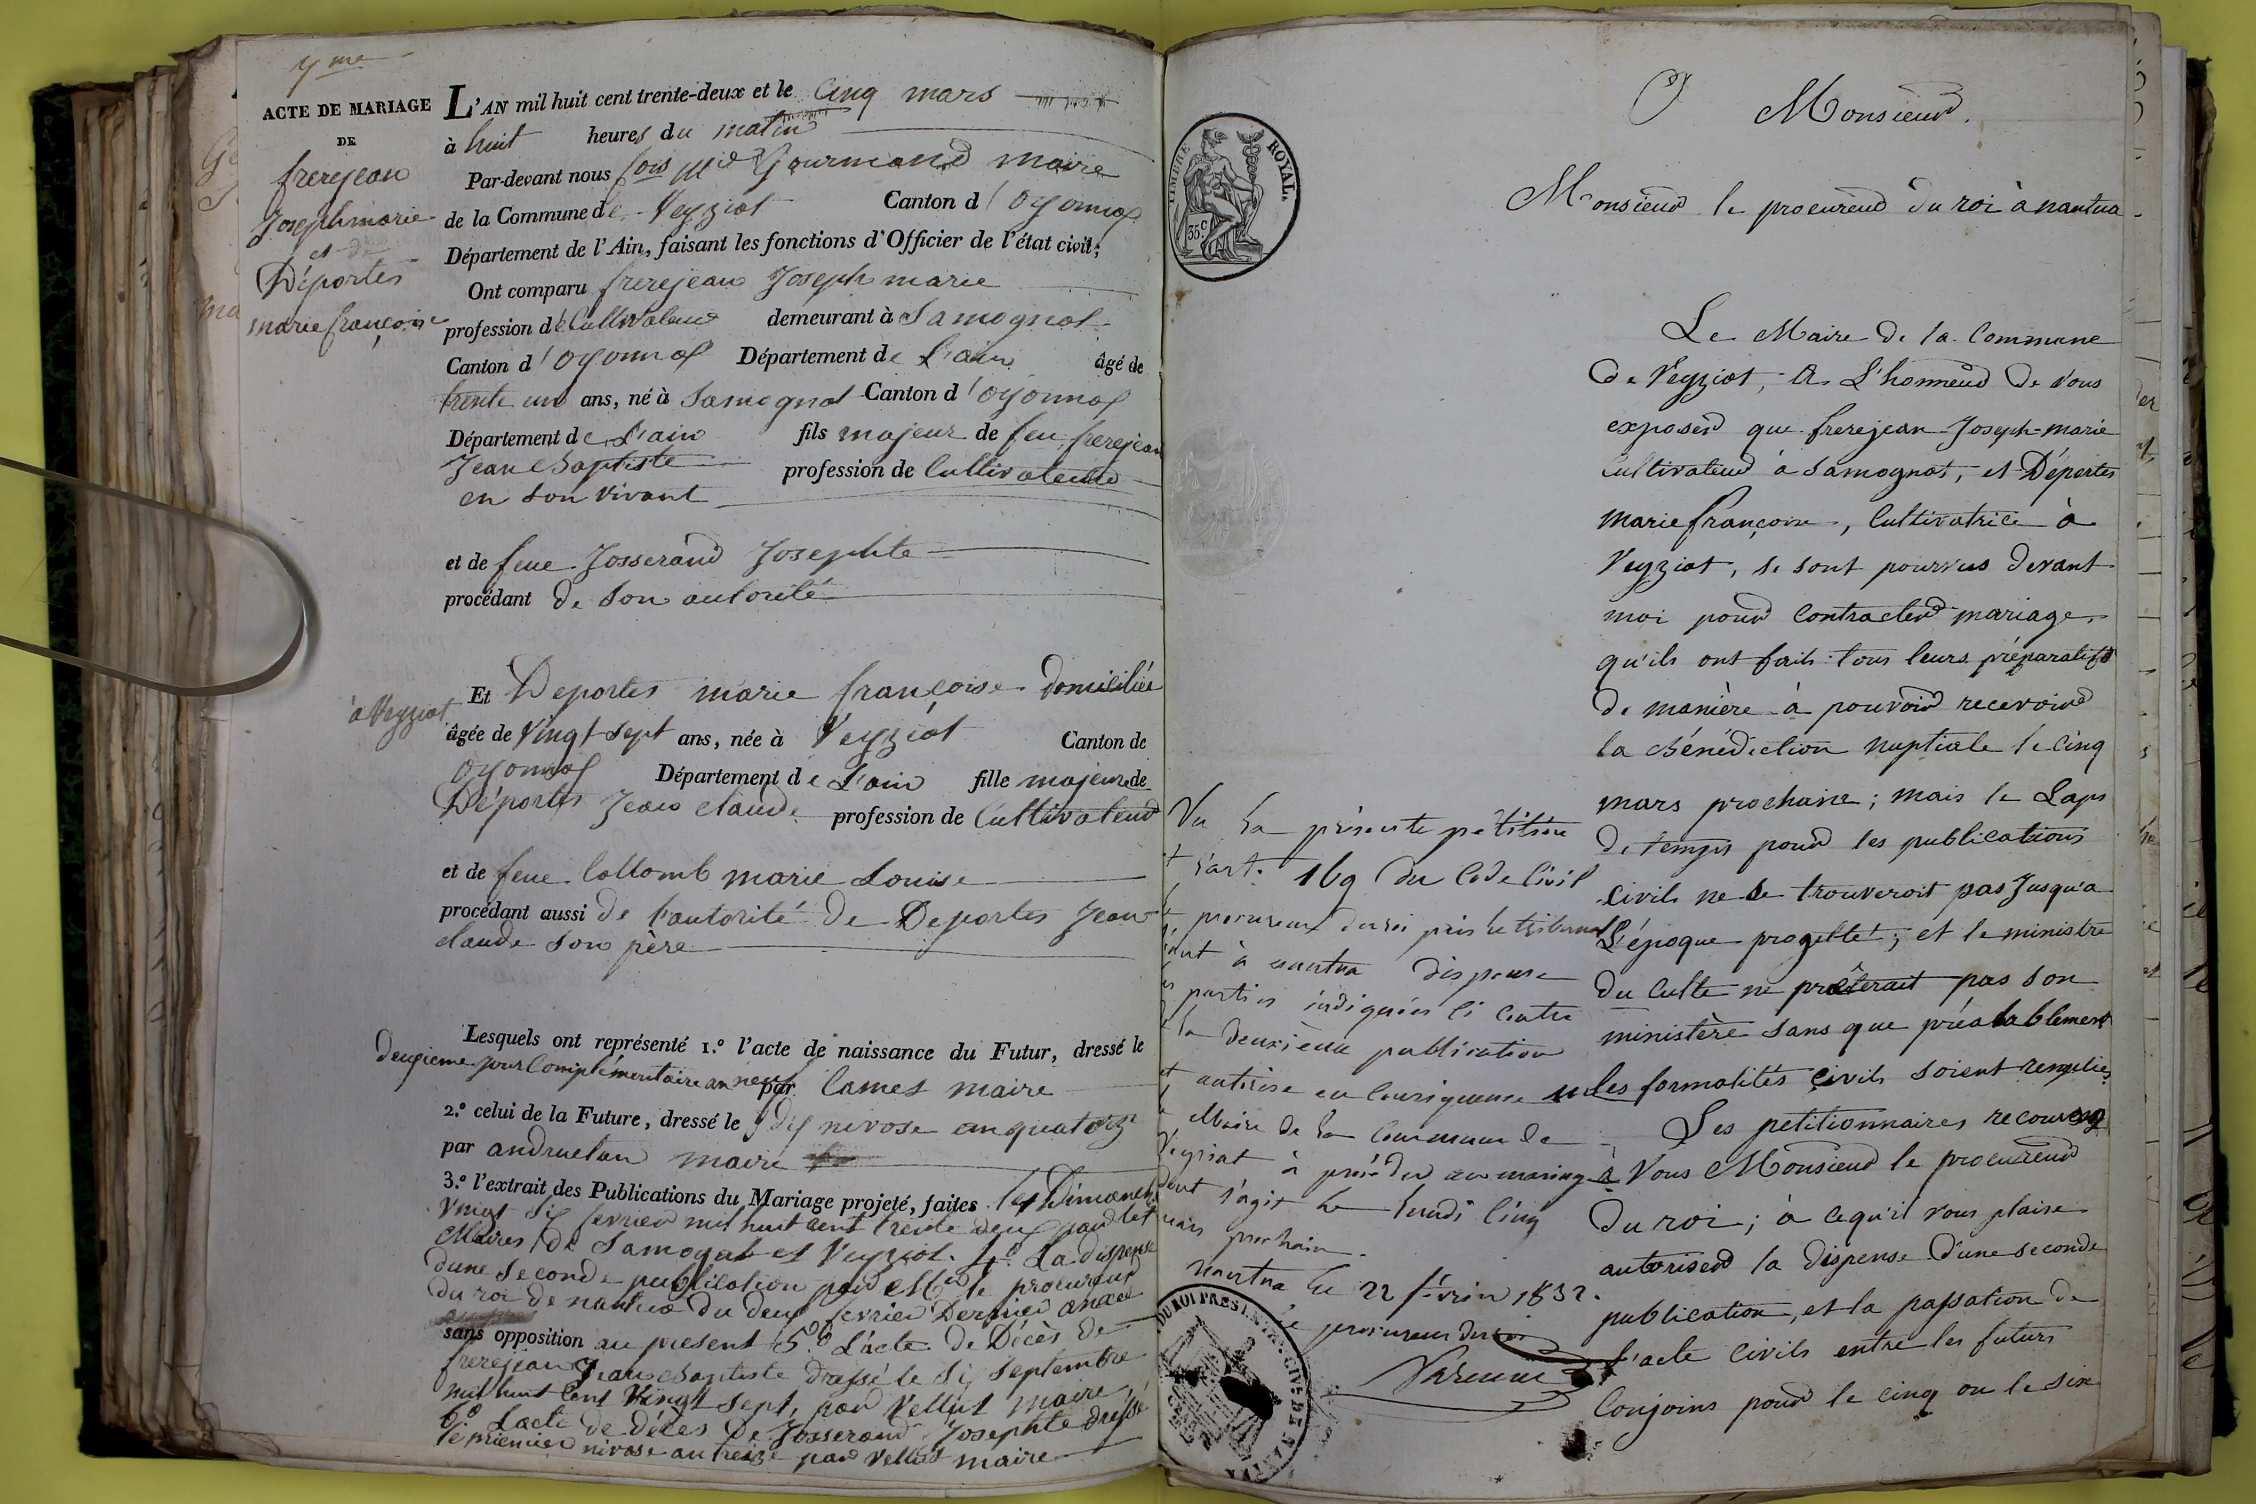 4me
ACTE DE MARIAGE
DE
frerejean
Joseph marie
et de
Déportes
marie françoise
L'AN mil huit cent trente-deux et le cinq mars
à huit heures du matin
Par-devant nous fois Mie Gourmand maire
de la Commune de Veyziat Canton d'Oyonnax
Département de l'Ain, faisant les fonctions d'Officier de l'état civil;
Ont comparu frerejean Joseph marie
profession de Cultivateur demeurant à Samognat
Canton d'oyonnax Département de L'ain âgé de
trente un ans, né à Samognat Canton d'oyonnax
Département de L'ain fils majeur de feu frerejean
Jean Baptiste profession de Cultivateur
en son vivant
et de feue Josserand Josephte
procédant de son autorité
Et Deportes marie françoise domiciliée
à Veyziat
âgée de Vingt sept ans, née à Veyziat Canton de
Oyonnax Département de L'ain fille majeure de
Déportes Jean claude profession de Cultivateur
et de feue Collomb marie Louise
procédant aussi de l'autorité de Deportes Jean
claude son père
Lesquels ont représenté 1.º l'acte de naissance du Futur, dressé le
deuxieme jour Complémentaire an neuf par Camet maire
2.º celui de la Future, dressé le dix nivose an quatorze
par andruetan maire
3.º l'extrait des Publications du Mariage projeté, faites les Dimanche
Vingt six fevrier mil huit cent trente deux par les
Maires de Samognat et Veyziat. 4º La dispense
d'une seconde publication par Mr le procureur
du roi de nantua du deux fevrier Dernier anexé
sans opposition au present 5º L'acte de Décès de
frerejean Jean Baptiste dressé le six septembre
mil huit cent Vingt sept, par Vellut maire
6º L'acte de décès de Josserand Josephte dressé
le premier nivose an treize par Vellut maire
TIMBRE ROYAL.
35c
Monsieur.
Monsieur le procureur du roi à nantua
Le Maire de la Commune
de Veyziat, a L'honneur de vous
exposer que frerejean Joseph-marie
Cultivateur à Samognat, et Déportes
marie françoise, Cultivatrice à
Veyziat, se sont pourvus devant
moi pour contracter mariage
qu'ils ont faits tous leurs préparatifs
de manière à pouvoir recevoir
la Bénédiction nuptiale le cinq
mars prochain; mais le Laps
de temps pour les publications
civils ne se trouveroit pas Jusqu'a
L'époque progetté; et le ministre
du Culte ne prêterait pas son
ministère sans que préalablement
les formalités civils soient remplies
Les petitionnaires recourent
à Vous Monsieur le procureur
du roi; à cequ'il vous plaise
autoriser la dispense d'une seconde
publication, et la passation de
L'acte civils entre les futurs
Conjoins pour le cinq ou le six
Vu la présente pétition
et l'art. 169 du Code Civil
le procureur du roi près le tribunal
séant à nantua dispense
les parties indiquées ci contre
de la deuxième publication
et autorise en conséquence
le Maire de la Commune de
Veyziat à procéder au mariage
dont s'agit le lundi cinq
mars prochain.
Nantua le 22 février 1832.
le procureur du roi